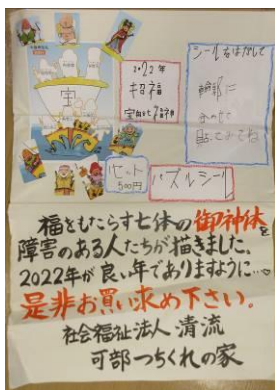 宝
2022年
招福
宝船七福神
シールをはがして
輪郭に
あわせて
貼ってみてね
1セット
500円
パズルシール
福をもたらす七体の御神体を
障害のある人たちが描きました。
2022年が良い年でありますように…
是非お買い求め下さい。
社会福祉法人 清流
可部つちくれの家